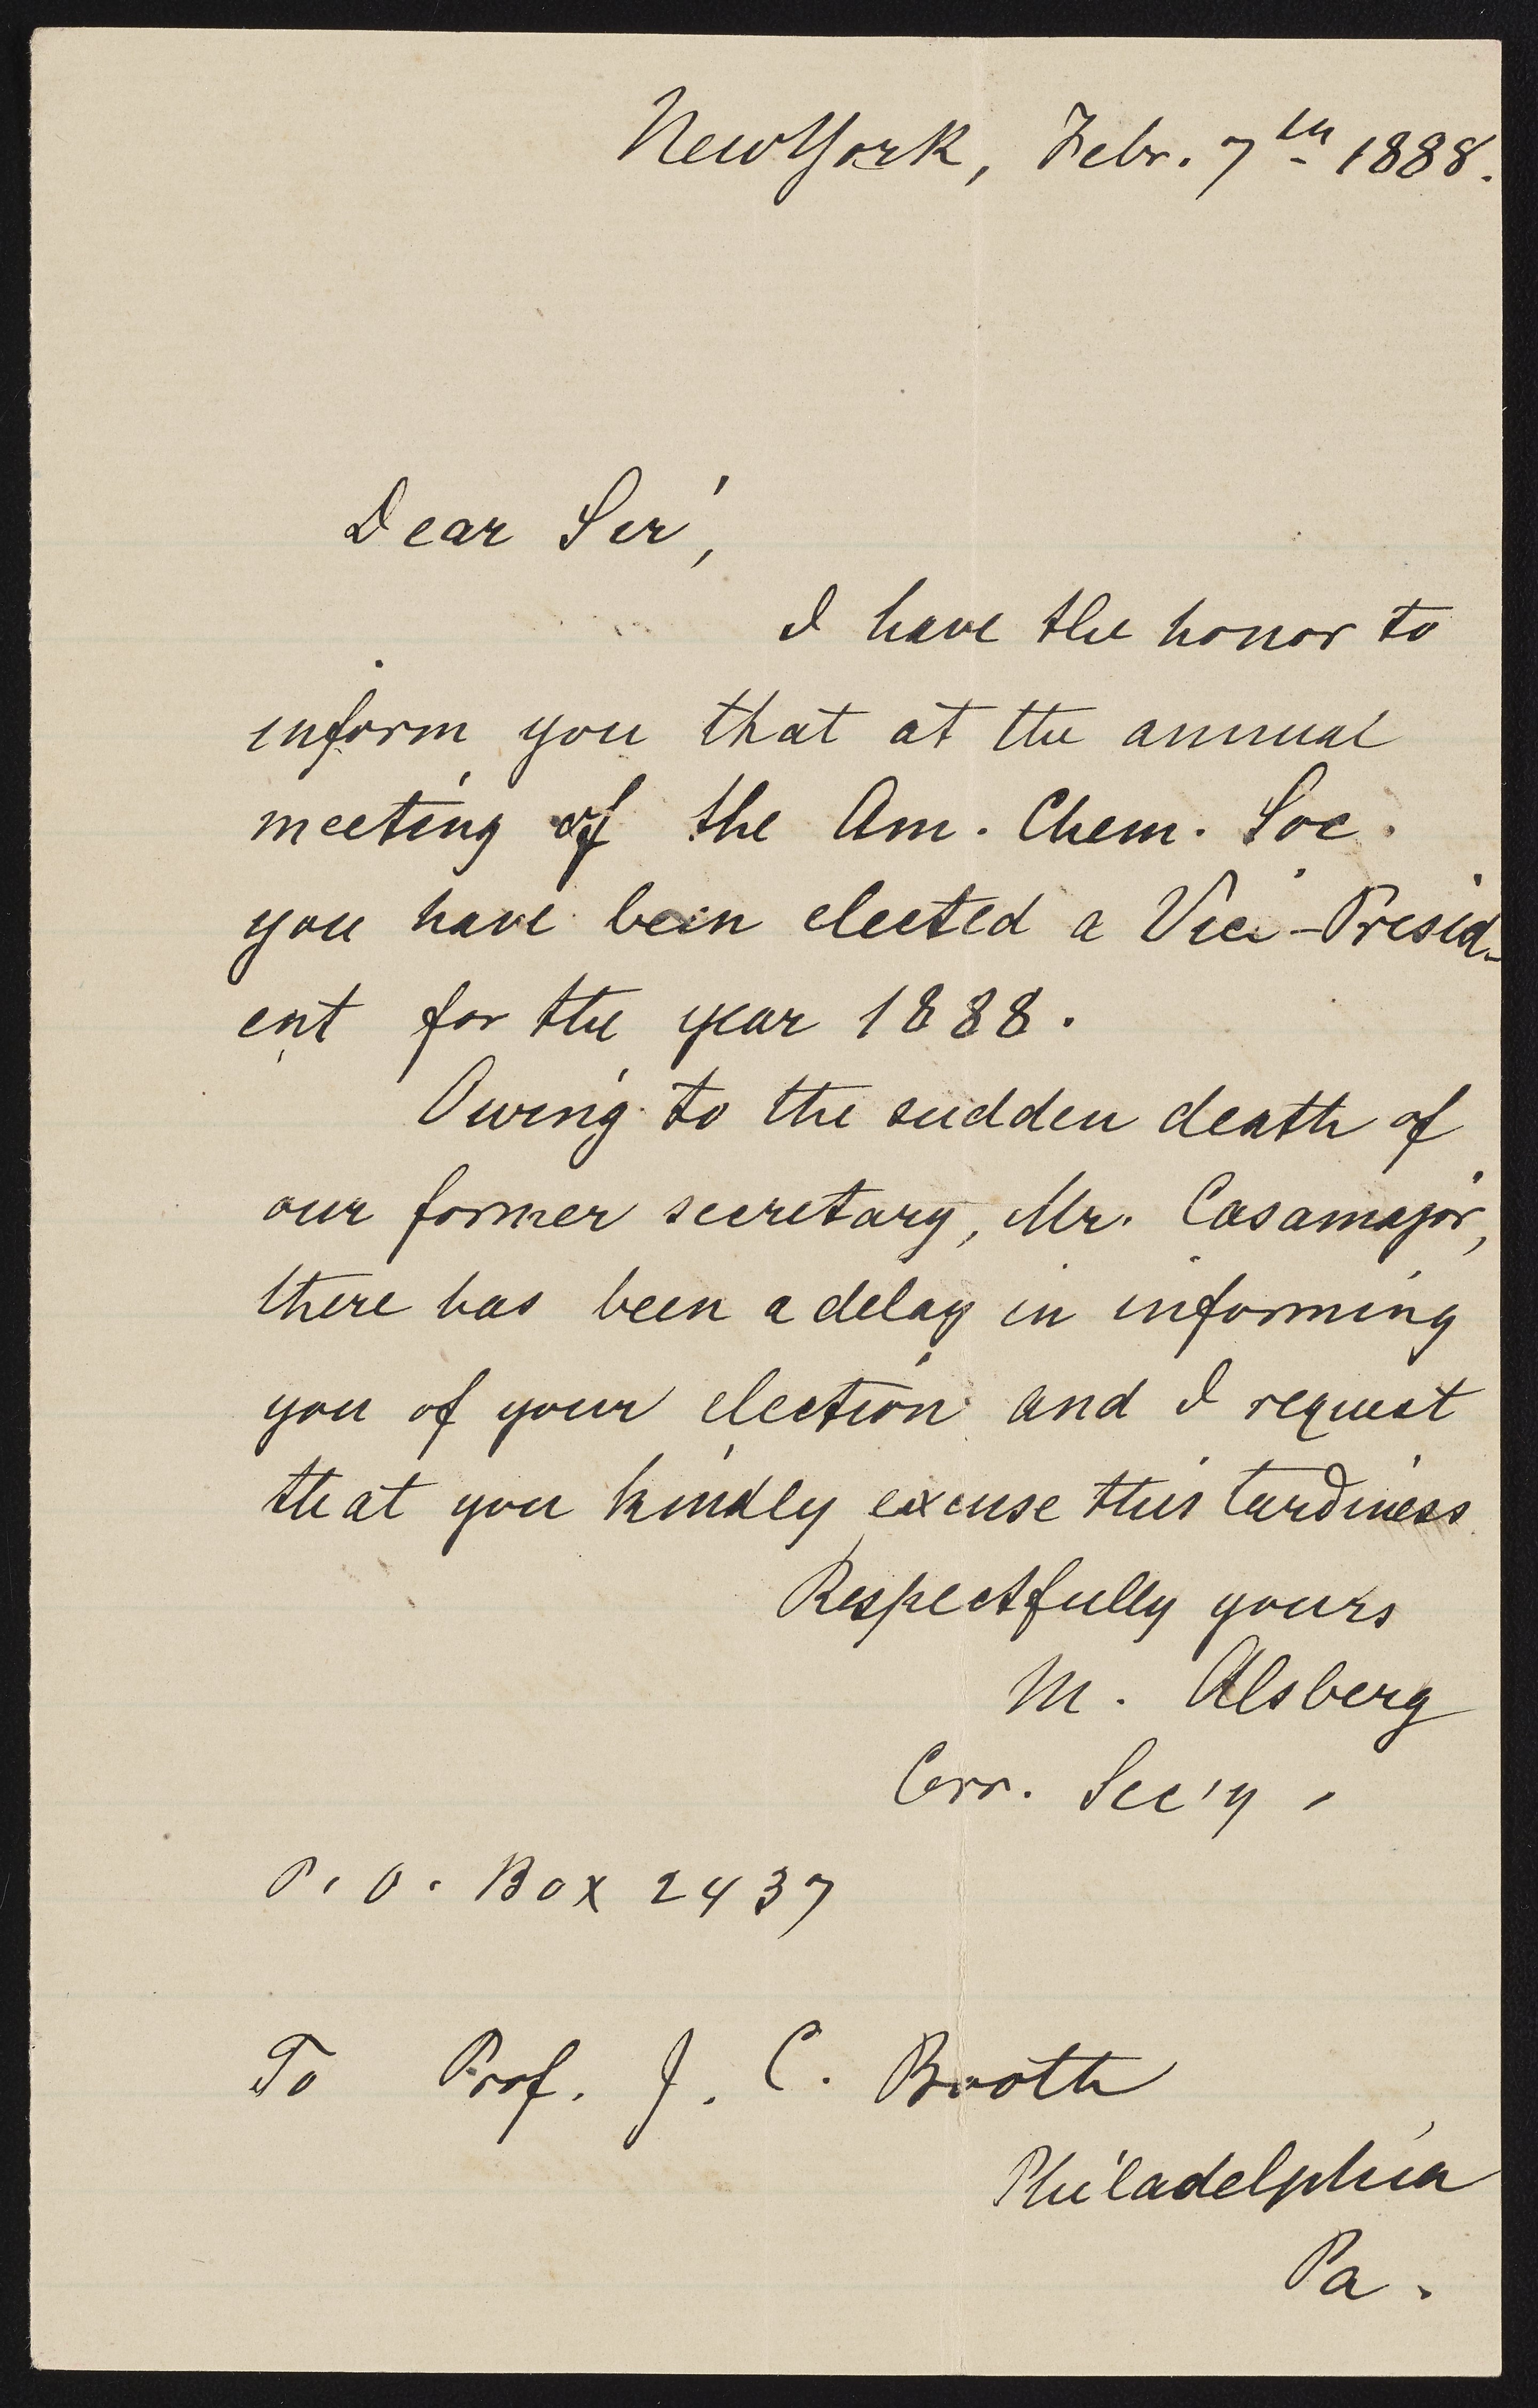 New York, Febr. 7th 1888.
Dear Sir,
I have the honor to
inform you that at the annual
meeting of the Am. Chem. Soc.
you have been elected a Vice-Presid-
ent for the year 1888.
Owing to the sudden death of
our former secretary, Mr. Casamajor,
there has been a delay in informing
you of your election and I request
that you kindly excuse this tardiness
Respectfully yours
M. Alsberg
Corr. Sec'y.
P. O. Box 2437
To Prof. J. C. Booth
Philadelphia
Pa.